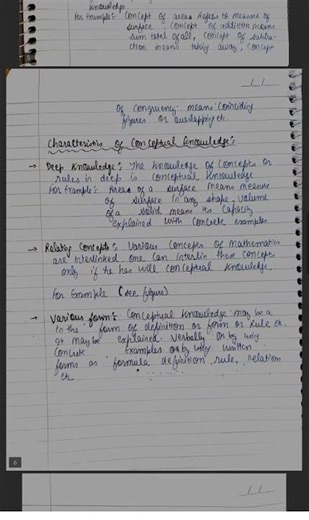 knowledge.
For Example: Concept of area refers to measure of
surface. Concept of addition means
sum total of all, Concept of subtra-
ction means taking away, Concept
of congruency means coinciding
figures or overlapping etc.
Characteristics of Conceptual Knowledge:
→ Deep Knowledge: The knowledge of concepts or
rules in deep is conceptual knowledge
For Example: Area of a surface means measure
of surface in any shape, volume
of a solid means its capacity
explained with concrete examples
→ Relating Concepts: Various concepts of mathematics
are interlinked one can interlin these concepts
only if he has will conceptual knowledge.
For Example (see figure)
→ Various form: Conceptual knowledge may be a
in the form of definition or form or rule etc.
It may be explained verbally or by way
concrete examples or by way written
forms as formula definition, rule, relation
etc.
6